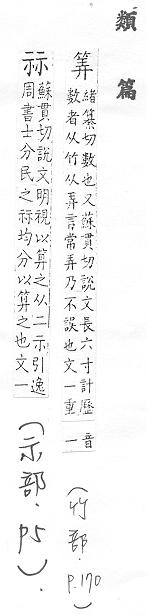 類篇
筭
緒纂切數也又蘇貫切說文長六寸計歷
數者从竹从弄言常弄乃不誤也文一重
音
一
(竹部. p.170)
祘
蘇貫切說文明視以算之从二示引逸
周書士分民之祘均分以算之也文一
(示部. p5).